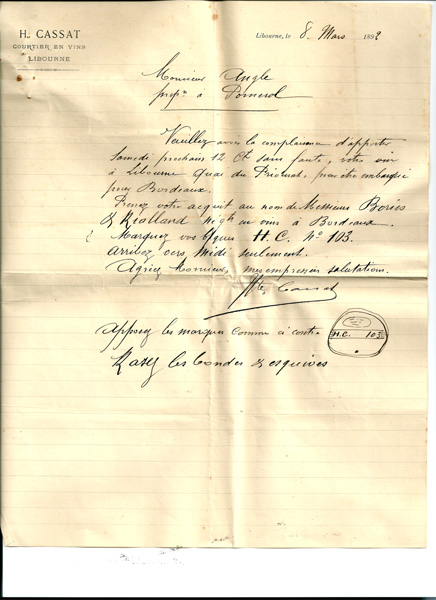 H. CASSAT
COURTIER EN VINS
LIBOURNE
Libourne, le 8. Mars 1892
Monsieur Angle
propre à Pomerol
Veuillez avoir la complaisance d'apporter
Samedi prochain 12 Ct sans faute, votre vin
à Libourne Quai du Priourat, pour être embarqué
pour Bordeaux.
Prenez votre acquit au nom de Messieurs Bories
& négt en vins à Bordeaux.
Marquez vos H.C. No 103.
arrivez vers midi seulement.
Agréez Monsieur, mes empressées salutations.
Cassat
Apposez les marques comme ci contre
H.C. 103
Razez les bondes & esquives